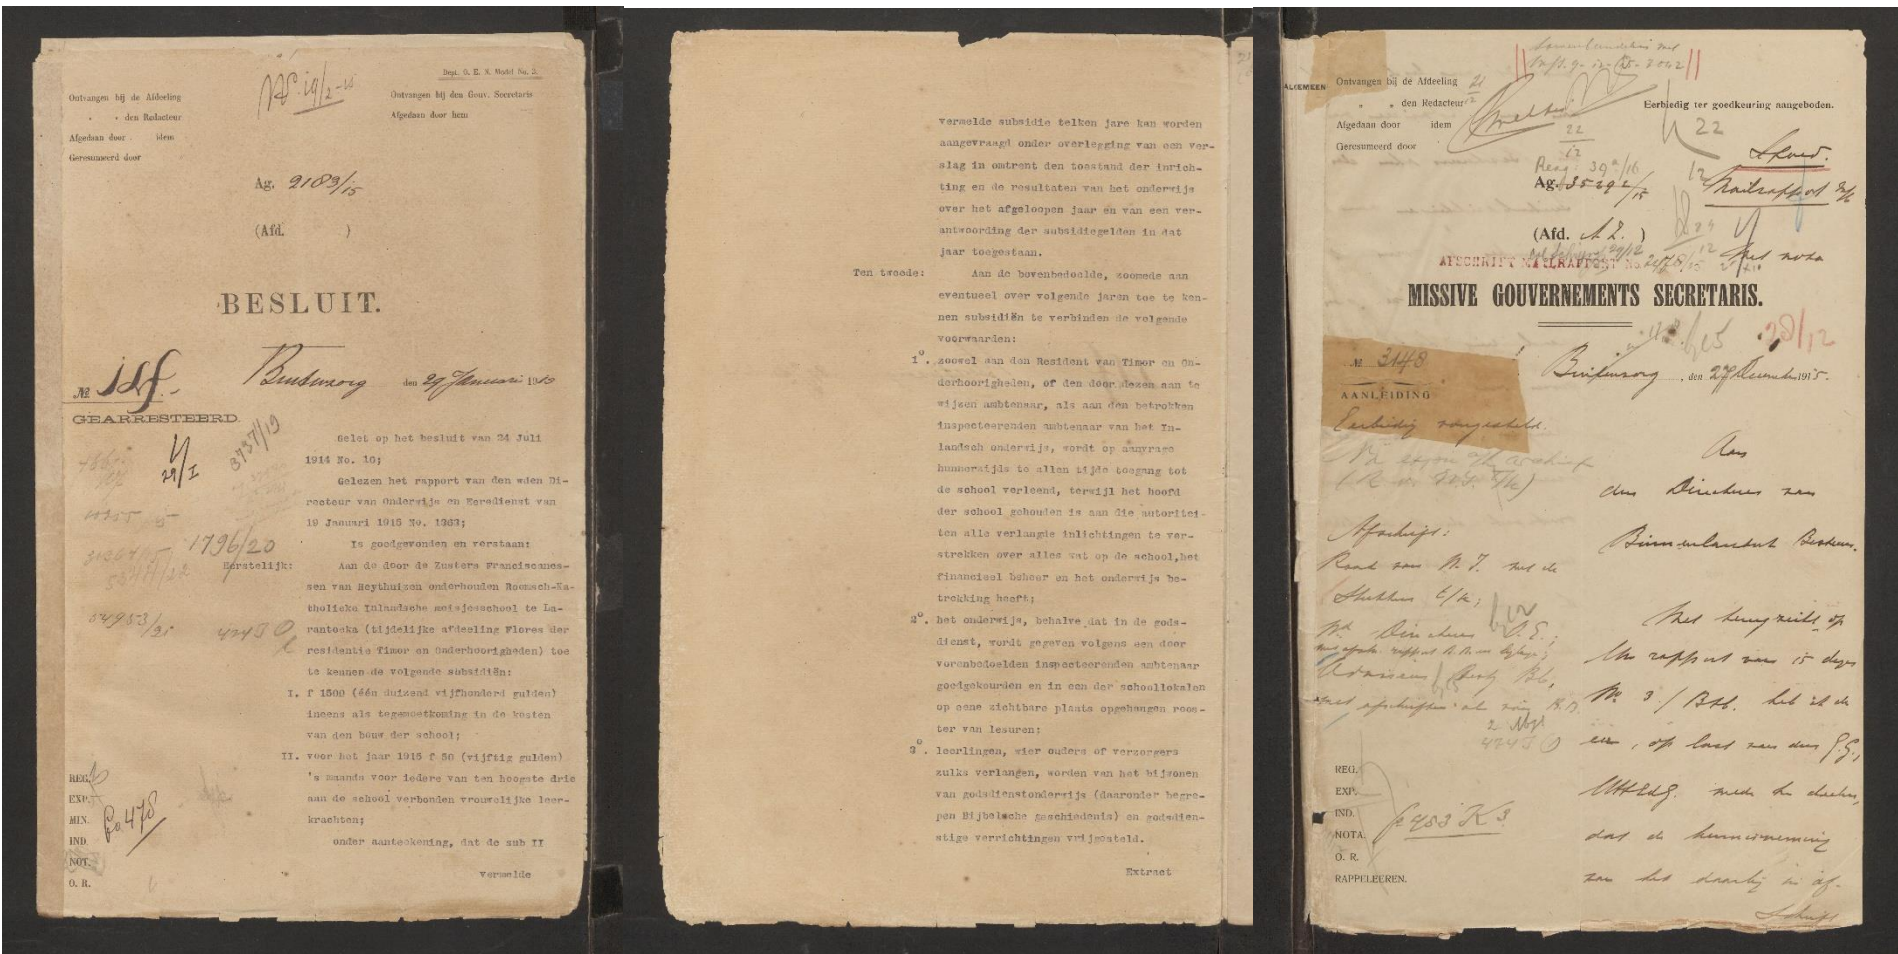 Dept. O. E. N. Model No. 3.
Ontvangen bij de Afdeeling
" " den Redacteur
Afgedaan door idem
Geresumeerd door
Ontvangen bij den Gouv. Secretaris
Afgedaan door hem
19/2-15
Ag. 2183/15
(Afd. )
BESLUIT.
Buitenzorg den 29 Januari 1915
No
GEARRESTEERD.
29/I
3737/19
1796/20
54953/21
4243
Gelet op het besluit van 24 Juli
1914 No. 10;
Gelezen het rapport van den wden Di-
recteur van Onderwijs en Eeredienst van
19 Januari 1915 No. 1363;
Is goedgevonden en verstaan:
Eerstelijk: Aan de door de Zusters Franciscanes-
sen van Heythuizen onderhouden Roomsch-Ka-
tholieke Inlandsche meisjesschool te La-
rantoeka (tijdelijke afdeeling Flores der
residentie Timor en Onderhoorigheden) toe
te kennen de volgende subsidiën:
I. f 1500 (één duizend vijfhonderd gulden)
ineens als tegemoetkoming in de kosten
van den bouw der school;
II. voor het jaar 1915 f 50 (vijftig gulden)
's maands voor iedere van ten hoogste drie
aan de school verbonden vrouwelijke leer-
krachten;
onder aanteekening, dat de sub II
vermelde
REG.
EXP.
MIN.
IND.
NOT.
O. R.
478
vermelde subsidie telken jare kan worden
aangevraagd onder overlegging van een ver-
slag in omtrent den toestand der inrich-
ting en de resultaten van het onderwijs
over het afgeloopen jaar en van een ver-
antwoording der subsidiegelden in dat
jaar toegestaan.
Ten tweede: Aan de bovenbedoelde, zoomede aan
eventueel over volgende jaren toe te ken-
nen subsidiën te verbinden de volgende
voorwaarden:
1o. zoowel aan den Resident van Timor en On-
derhoorigheden, of den door dezen aan te
wijzen ambtenaar, als aan den betrokken
inspecteerenden ambtenaar van het In-
landsch onderwijs, wordt op aanvrage
hunnerzijds te allen tijde toegang tot
de school verleend, terwijl het hoofd
der school gehouden is aan die autoritei-
ten alle verlangde inlichtingen te ver-
strekken over alles wat op de school, het
financieel beheer en het onderwijs be-
trekking heeft;
2o. het onderwijs, behalve dat in de gods-
dienst, wordt gegeven volgens een door
vorenbedoelden inspecteerenden ambtenaar
goedgekeurden en in een der schoollokalen
op eene zichtbare plaats opgehangen roos-
ter van lesuren;
3o. leerlingen, wier ouders of verzorgers
zulks verlangen, worden van het bijwonen
van godsdienstonderwijs (daaronder begre-
pen Bijbelsche geschiedenis) en godsdien-
stige verrichtingen vrijgesteld.
Extract
ALGEMEEN
Ontvangen bij de Afdeeling 21/12
" " den Redacteur
Afgedaan door idem
Geresumeerd door
22/12
Eerbiedig ter goedkeuring aangeboden.
22
12
Spoed.
Mailrapport
Ag. 35292/15
(Afd. A Z. )
Met nota
AFSCHRIFT MAILRAPPORT No. 2178/15
MISSIVE GOUVERNEMENTS SECRETARIS.
28/12
No 3148
Buitenzorg, den 27 December 1915.
AANLEIDING
Eerbiedig voorgesteld.
Aan
den Directeur van
Binnenlandsch Bestuur.
Afschrift:
Raad van N. I. met de
Stukken t/k;
Directeur O. E.;
Met terugzicht op
Uw rapport van 15 dezer
No 3 / Bb. heb ik de
eer, op last van den G.G.,
UHEdG. mede te deelen,
dat de kennisneming
van het daarbij in af-
schrift
4243
REG.
EXP.
IND.
NOTA.
O. R.
RAPPELEEREN.
953 K 3.